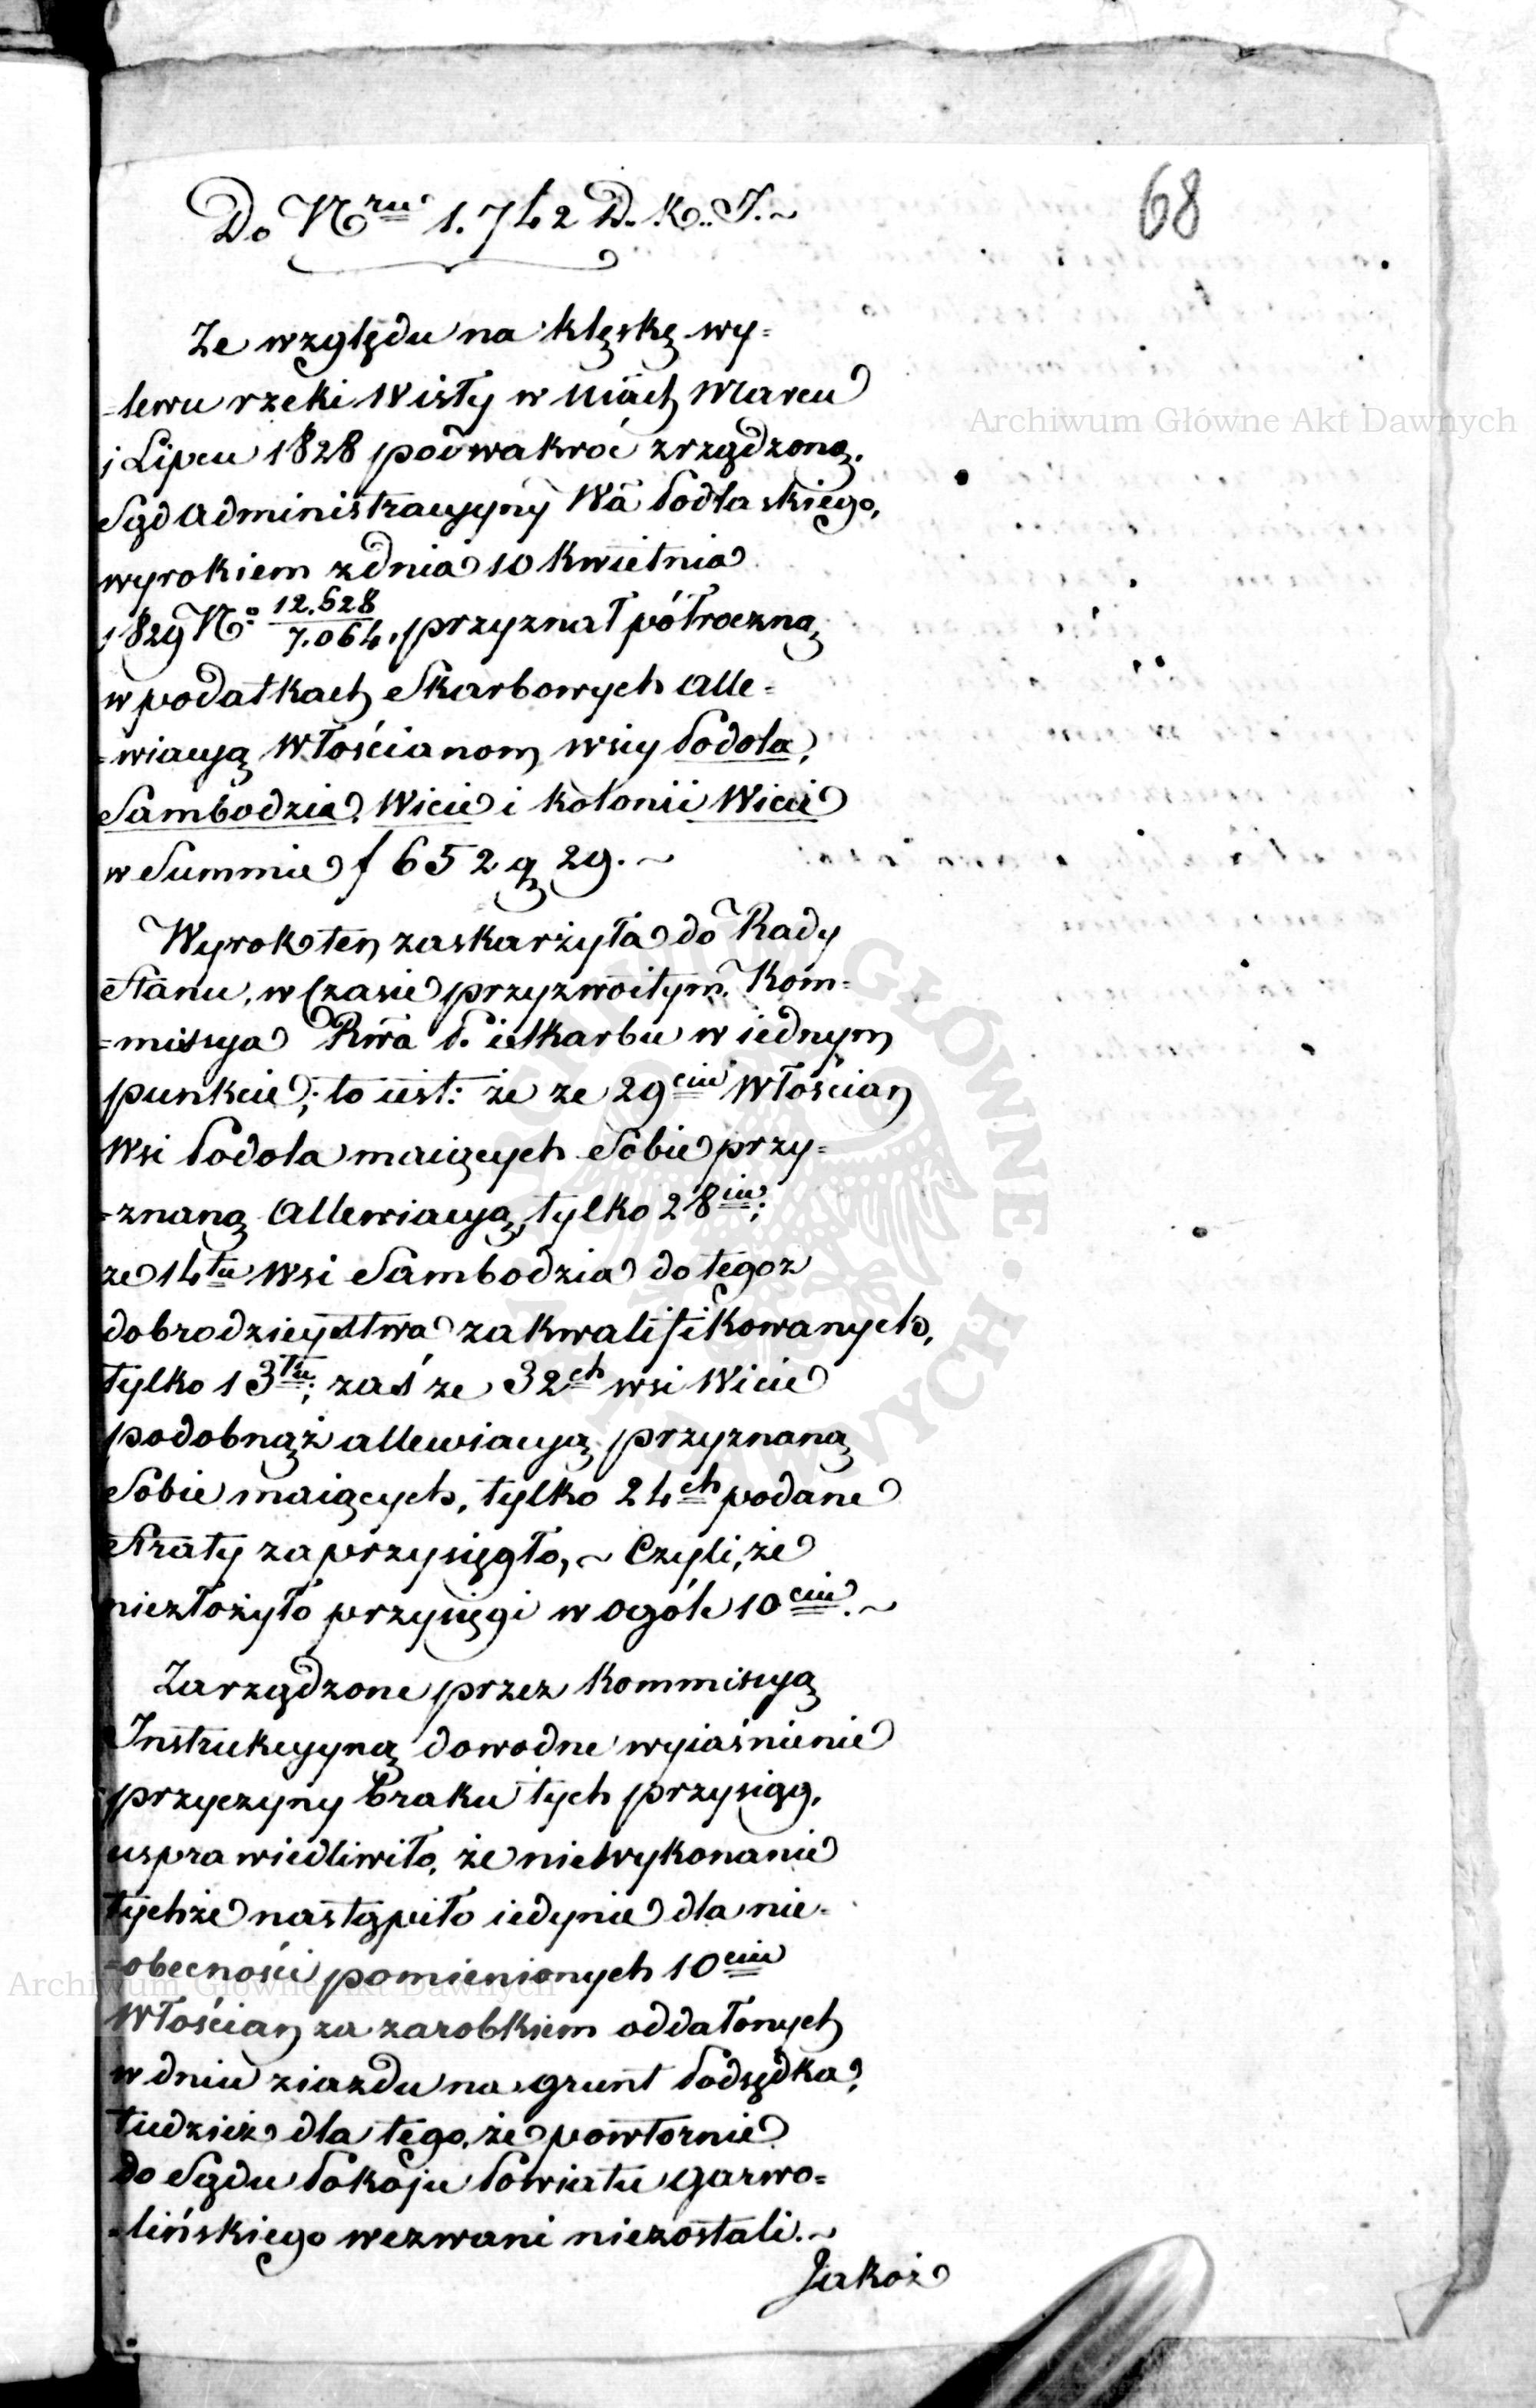 68
Do Nru 1.742 D. K. J.~
Ze względu na klęskę wy=
=lewu rzeki Wisły w Miach Marcu
i Lipcu 1828 podwakroć zrządzoną.
Sąd Administracyyny Wa Podlaskiego,
wyrokiem z dnia 10 Kwietnia
1829 No 12.628/7.064. przyznał półroczną
w podatkach Skarbowych alle=
=wiacyą Włościanom wsiy Podola,
Sambodzia, Wicie i kolonii Wicie
w Summie f 652 g 29.~
Wyrok ten zaskarżyła do Rady
Stanu, w Czasie przyzwoitym, Kom=
=missya Rwa P. i Skarbu w iednym
punkcie; to iest: że ze 29ciu Włościan
Wsi Podola maiących Sobie przy=
=znaną Allewiacyą, tylko 28iu;
ze 14tu Wsi Sambodzia do tegoz
dobrodzieystwa zakwalifikowanych,
tylko 13tu; zaś ze 32ch wsi Wicie
podobnąż allewiacyą przyznaną
Sobie maiących, tylko 24ch podane
Straty zaprzysięgło,~ Czyli, że
niezłożyło przysięgi w ogóle 10ciu.~
Zarządzone przez Kommissyą
Instrukcyyną dowodne wyiaśnienie
przyczyny braku tych przysiąg,
usprawiedliwiło, że niewykonanie
tychże nastąpiło iedynie dla nie=
=obecności pomienionych 10ciu
Włościan za zarobkiem oddalonych
w dniu ziazdu na grunt Podsędka,
tudzież dla tego, że powtornie
do Sądu Pokoju Powiatu Garwo=
=lińskiego wezwani niezostali.~
Jakoż
Archiwum Główne Akt Dawnych
Archiwum Główne Akt Dawnych
ARCHIWUM GŁÓWNE AKT DAWNYCH